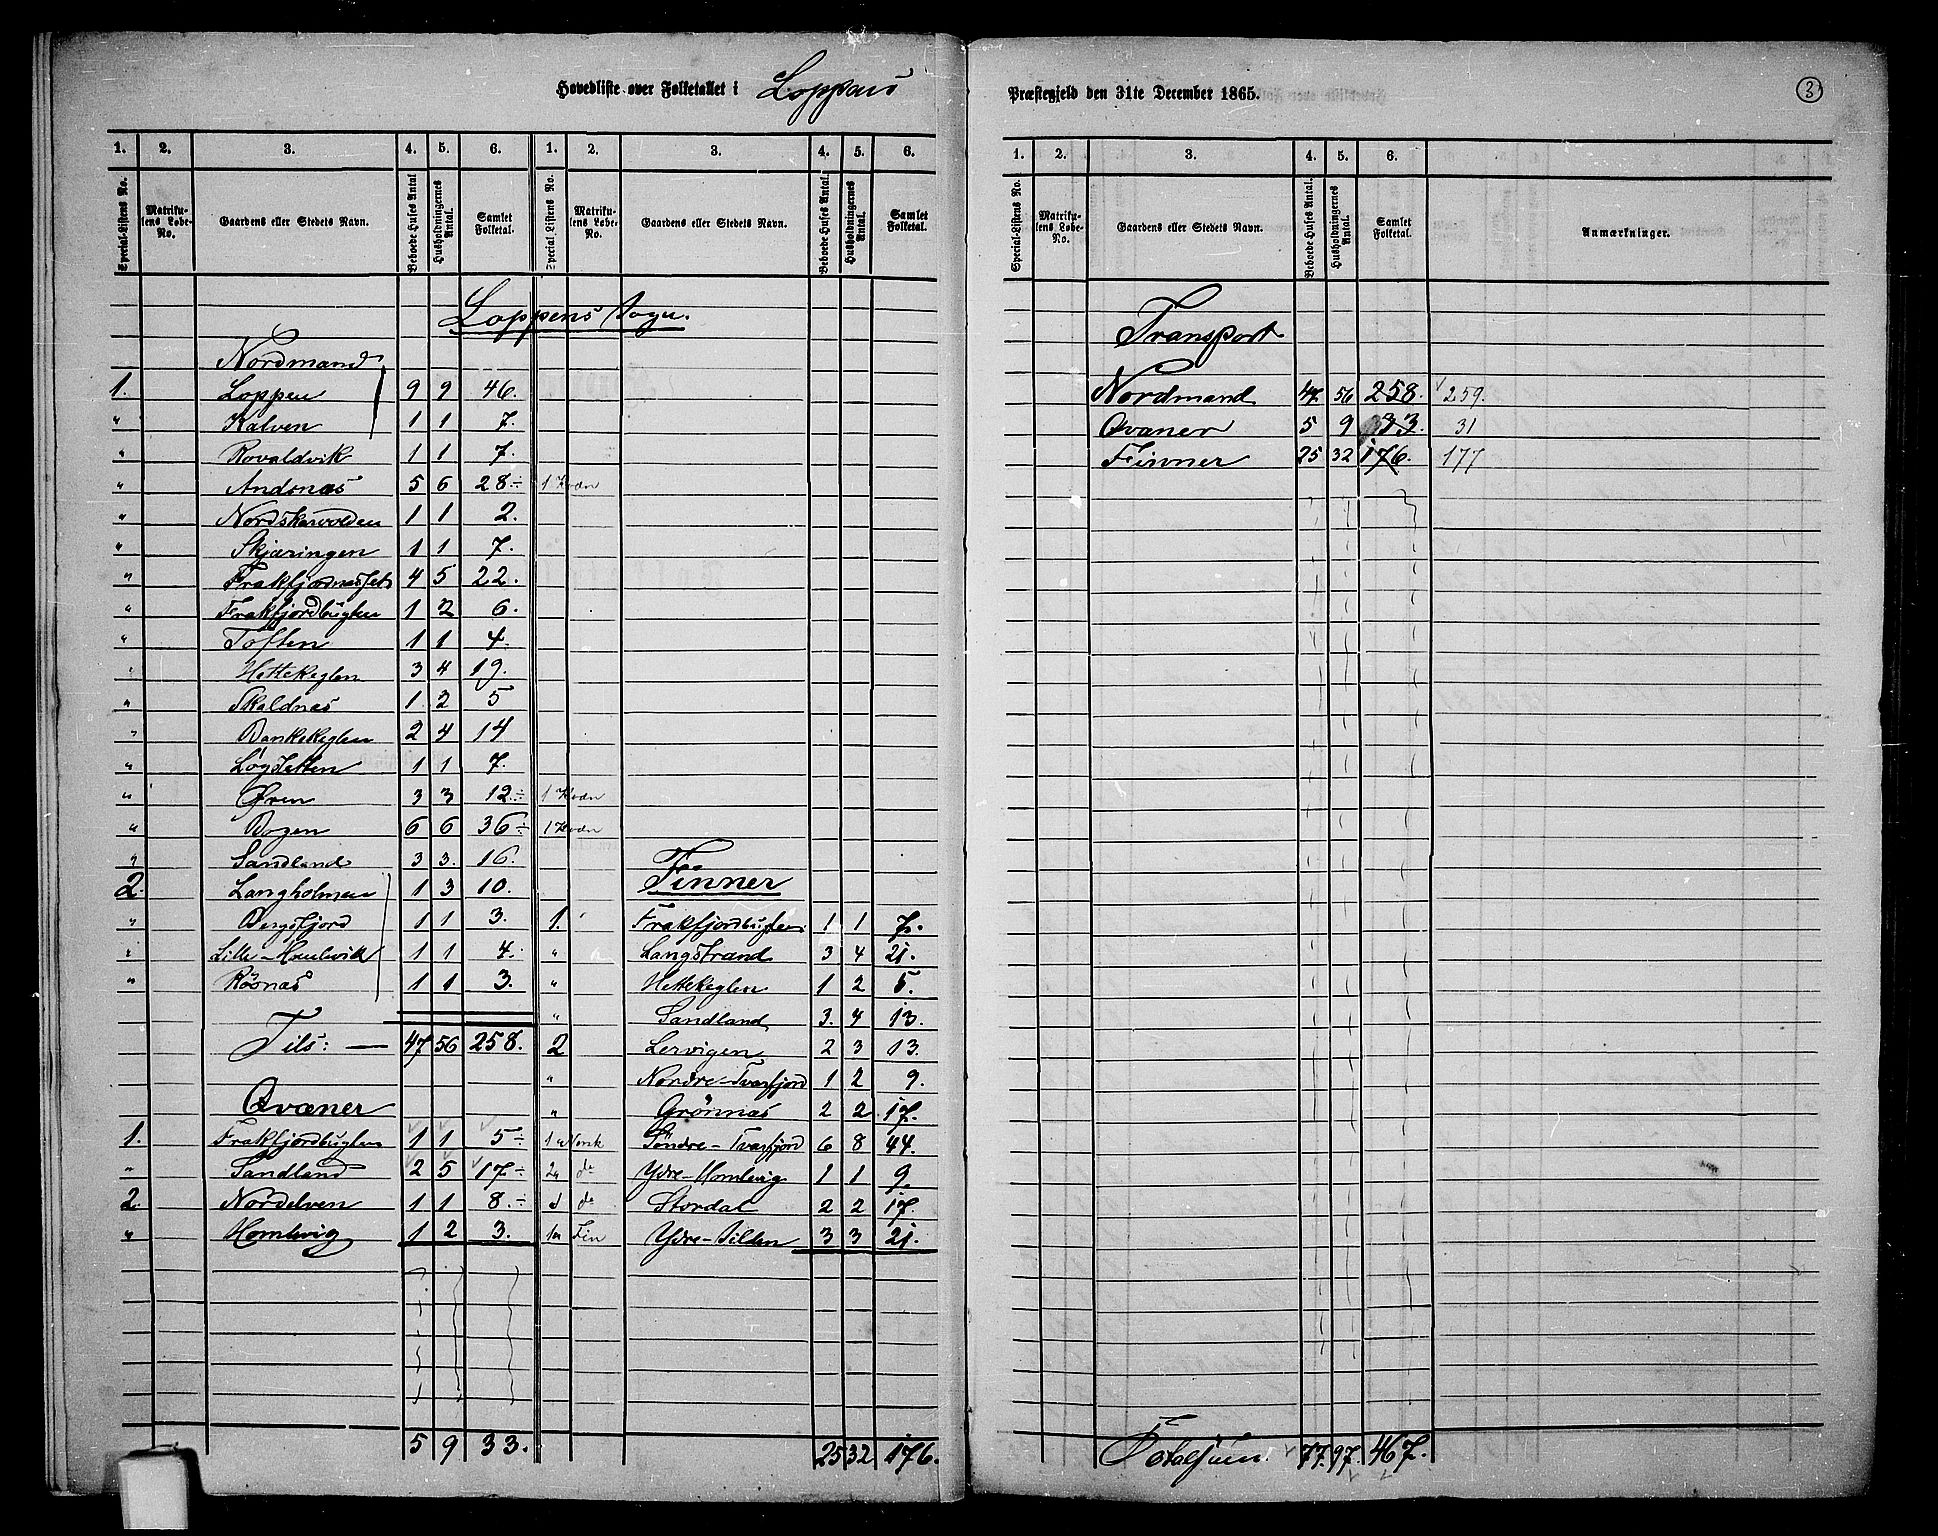 Hovedliste over Folketallet i Loppens
Præstegjeld den 31te December 1865.
3
1. 2. 3. 4. 5. 6. 1. 2. 3. 4. 5. 6.
Special-Listens No. Matrikulens Løbe-No. Gaardens eller Stedets Navn. Beboede Huses Antal Husholdningernes Antal. Samlet Folketal. Special-Listens No. Matrikulens Løbe-No. Gaardens eller Stedets Navn. Beboede Huses Antal. Husholdningernes Antal. Samlet Folketal.
Loppens Sogn.
Nordmænd
1. Loppen 9 9 46.
" Kalven 1 1 7.
" Rovaldvik 1 1 7.
" Andsnæs 5 6 28 ÷ 1 Kvæn
" Nordskarvolden 1 1 2.
" Skjæringen 1 1 7.
" Frakfjordnæsset 4 5 22.
" Frakfjordbugten 1 2 6.
" Toften 1 1 4.
" Hettekeglen 3 4 19.
" Skaldnæs 1. 2 5
" Bankekeglen 2 4 14
" Løgsletten 1 1 7.
" Øren 3 3 12. ÷ 1 Kvæn
" Bogen 6 6 36 ÷ 1 Kvæn
" Sandland 3 3. 16.
2. Langholmen 1 3 10.
" Bergsfjord 1 1 3.
" Lille-Homlevik 1 1 4.
" Røsnæs 1 1 3.
Tils: — 47 56 258.
Qvæner
1. Frakfjordbugten 1 1 5 ÷ 1 Norsk
" Sandland 2 5 17 ÷ 2 do
2. Nordelven 1 1 8. ÷ do
" Homlevig 1 2 3. 1 Fin
5 9 33.
Finner
1. Frakfjordbugten 1 1 7.
" Langstrand 3 4 21.
" Hettekeglen 1 2 5.
" Sandland 3. 4 13.
2 Lervigen 2 3 13.
" Nordre-Tverfjord 1 2 9.
" Grønnæs 2 2. 17.
Søndre-Tverfjord 6 8 44.
Ydre-Homlevig 1 1 9.
Stordal 2 2 17.
Ydre-Silden 3 3 21.
25 32 176.
1. 2. 3. 4. 5. 6.
Special-Listens No. Matrikulens Løbe-No. Gaardens eller Stedets Navn. Beboede Huses Antal. Husholdningernes Antal. Samlet Folketal. Anmærkninger.
Transport
Nordmænd 47 56 258. 259.
Qvæner 5 9 33. 31
Finner 25 32 176. 177
Totalsum. 77. 97. 467.